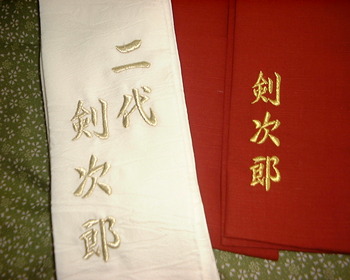 二代
剣次郎
剣次郎